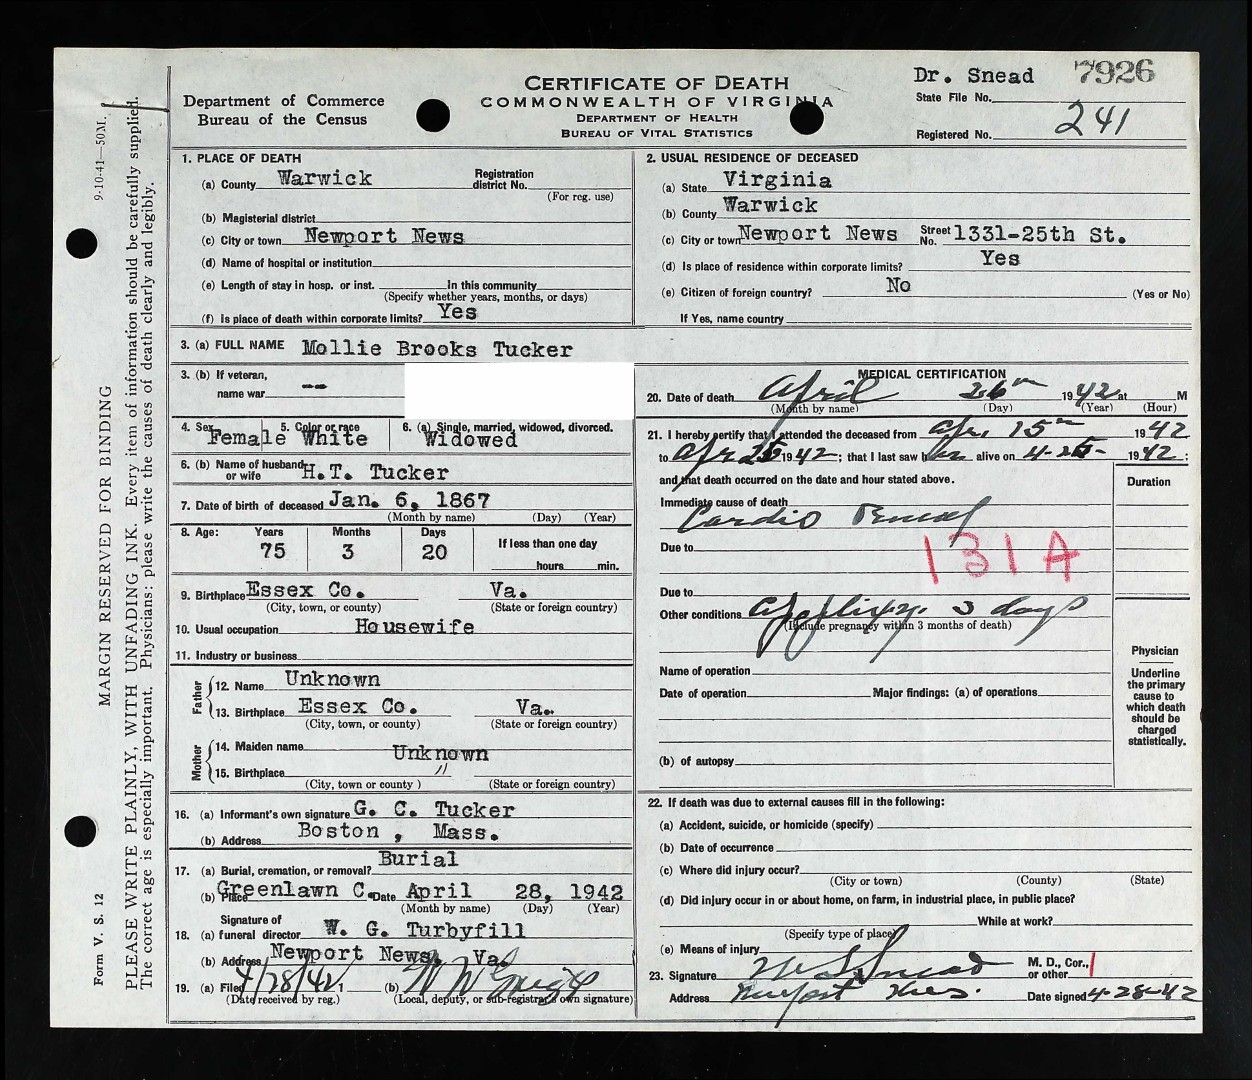 Dr. Snead 7926
CERTIFICATE OF DEATH
Department of Commerce
Bureau of the Census
COMMONWEALTH OF VIRGINIA
DEPARTMENT OF HEALTH
BUREAU OF VITAL STATISTICS
State File No.
Registered No. 241
1. PLACE OF DEATH
(a) County Warwick Registration district No.
(For reg. use)
(b) Magisterial district
(c) City or town Newport News
(d) Name of hospital or institution
(e) Length of stay in hosp. or inst. In this community
(Specify whether years, months, or days)
(f) Is place of death within corporate limits? Yes
2. USUAL RESIDENCE OF DECEASED
(a) State Virginia
(b) County Warwick
(c) City or town Newport News Street No. 1331-25th St.
(d) Is place of residence within corporate limits? Yes
(e) Citizen of foreign country? No (Yes or No)
If Yes, name country
3. (a) FULL NAME Mollie Brooks Tucker
3. (b) If veteran,
name war --
4. Sex Female 5. Color or race White 6. (a) Single, married, widowed, divorced. Widowed
6. (b) Name of husband or wife H.T. Tucker
7. Date of birth of deceased Jan. 6, 1867
(Month by name) (Day) (Year)
8. Age: Years Months Days If less than one day
75 3 20 hours min.
9. Birthplace Essex Co. Va.
(City, town, or county) (State or foreign country)
10. Usual occupation Housewife
11. Industry or business
Father
12. Name Unknown
13. Birthplace Essex Co. Va.
(City, town, or county) (State or foreign country)
Mother
14. Maiden name Unknown
15. Birthplace "
(City, town or county) (State or foreign country)
16. (a) Informant's own signature G. C. Tucker
(b) Address Boston, Mass.
17. (a) Burial, cremation, or removal? Burial
(b) Place Greenlawn C. Date April 28, 1942
(Month by name) (Day) (Year)
18. Signature of
(a) funeral director W. G. Turbyfill
(b) Address Newport News, Va.
19. (a) Filed 4/28/42, 1 (b)
(Date received by reg.) (Local, deputy, or sub-registrar's own signature)
MEDICAL CERTIFICATION
20. Date of death April 26th 1942 at M
(Month by name) (Day) (Year) (Hour)
21. I hereby certify that I attended the deceased from Apr. 15th 1942
to Apr 25 1942; that I last saw her alive on 4-25- 1942;
and that death occurred on the date and hour stated above. Duration
Immediate cause of death
Cardio Renal
Due to 131A
Due to
Other conditions Apoplexy. 3 days
(Include pregnancy within 3 months of death)
Name of operation
Date of operation Major findings: (a) of operations
(b) of autopsy
Physician
Underline
the primary
cause to
which death
should be
charged
statistically.
22. If death was due to external causes fill in the following:
(a) Accident, suicide, or homicide (specify)
(b) Date of occurrence
(c) Where did injury occur?
(City or town) (County) (State)
(d) Did injury occur in or about home, on farm, in industrial place, in public place?
While at work?
(Specify type of place)
(e) Means of injury
23. Signature Snead M. D., Cor., or other
Address Newport News. Date signed 4-28-42
9-10-41—50M.
MARGIN RESERVED FOR BINDING
Form V. S. 12
PLEASE WRITE PLAINLY, WITH UNFADING INK. Every item of information should be carefully supplied.
The correct age is especially important. Physicians: please write the causes of death clearly and legibly.